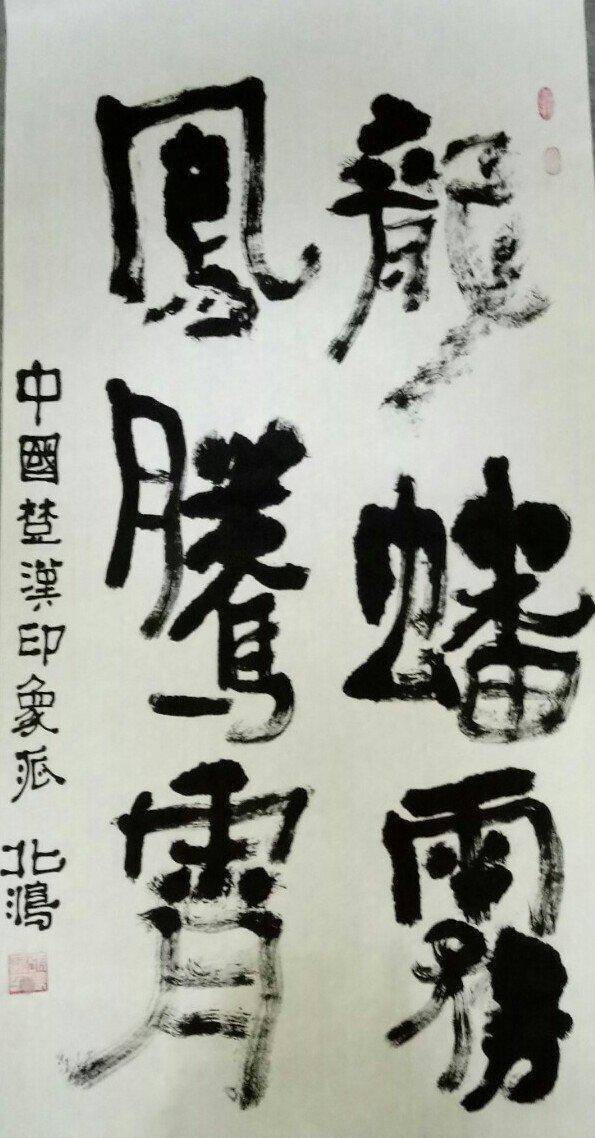 龍蟠霧
鳳騰霄
中國楚漢印象派 北鴻